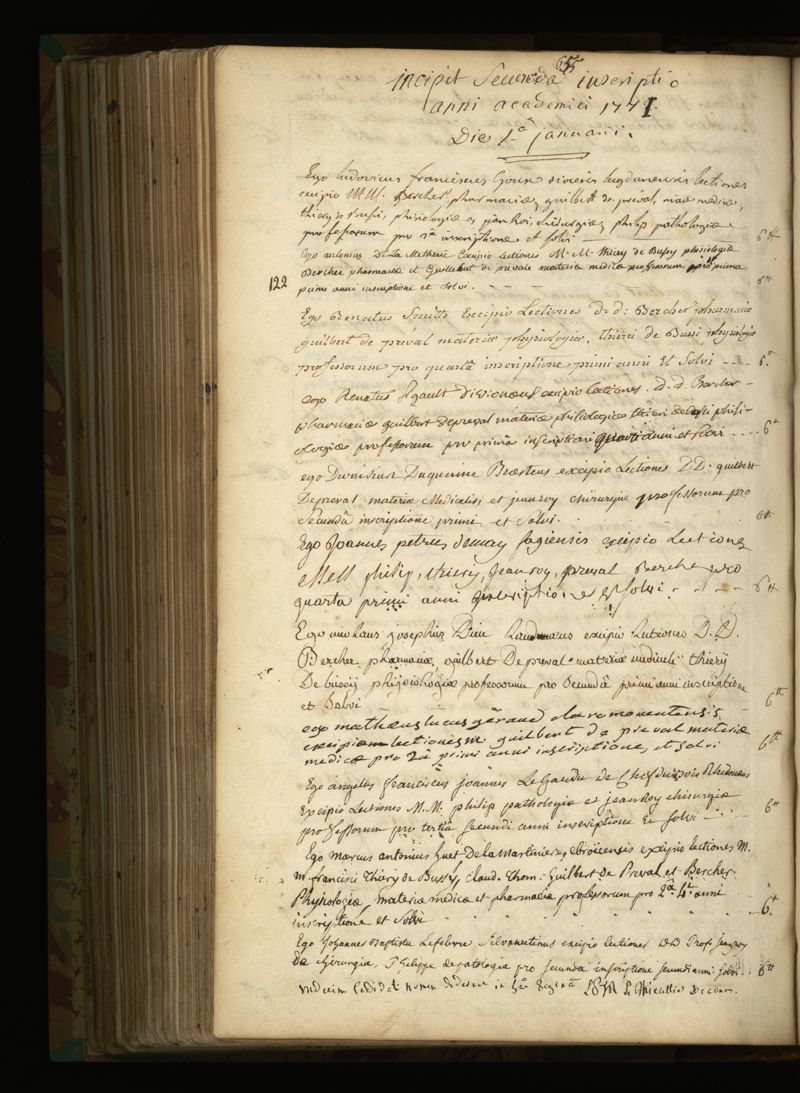 655
incipit Secunda inscriptio
anni academici 1771.
Die 1ª januarii.
Ego ludovicus franciscus diocesis lugdunensis lectiones
excipio M.M. Bercher pharmaciæ, guilbert de préval, mae medicæ,
thiery de Bussi, phisiologiæ, jean Roi, chirurgiæ, philip pathologiæ
professorum pro 1ª inscriptione et solvi 6tt
Ego antonius De La Metherie Excipio Lectiones M. M. thiery de Bussy physiologiæ
Bercher pharmaciæ et Guillebert de prevale materiæ medicæ professorum pro prima
122
primi anni inscriptione et solvi. 6tt
Ego Renatus Smith Excipio Lectiones d: d: Bercher pharmaciæ
guilbert de préval materiæ physiologiæ, thieri de Bussi physiologiæ
professorum pro quartâ inscriptione primi anni Et Solvi 6tt
ego Renatus excipio lectiones. d. d. Bercher
pharmaciæ guilbert depreval materiæ thieri
professorum pro primâ inscriptione quarti anni et solvi 6tt
ego Dionisius Duquerine excipio Lectiones DD. guilbert
Depreval materiæ Medicalis, et jeanroy chirurgiæ professorum pro
secundâ inscriptione primi et Solvi. 6tt
Ego Joannes petrus demay sagiensis excipio Lectiones
philip, thiery, Jeanroy, preval Berche pro
quarta primi anni inscriptione et solvi 6tt
Ego nicolaus josephus Dieu Laudunæus excipio lectiones D. D.
Bercher pharmaciæ, guilbert De preval materiæ medicæ thierij
De bussij phijsiologiæ professorum pro secundâ primi anni inscriptione
et Solvi 6tt
ego mathæus lucas géraud claromontensis
excipio lectiones m. guilbert de preval materiæ
medicæ pro 2â primi anni inscriptione, et solvi 6tt
Ego angelus franciscus joannes Le Gaudu de Rhedonæus
Excipio Lectiones M. M. philip pathologiæ et jeanRoy chirurgiæ
professorum pro tertiâ secundi anni inscriptione Et solvi 6tt
Ego marcus antonius huet Delamartiniere, ebroïcensis excipio lectiones M.
m francisci Thiery de Bussy, claud. thom: Guilbert de Preval, et Bercher.
Physiologiæ, materiæ medicæ et pharmaciæ professorum pro 2ª anni
inscriptione et solvi 6tt
Ego Johannes Baptista Lefebvre Silvanectinus excipio lectiones DD Prof. jeanroy
de chirurgia, Philippe de patologia pro secunda inscriptione secundi anni solvi 6tt
Le Thieullier decanus.